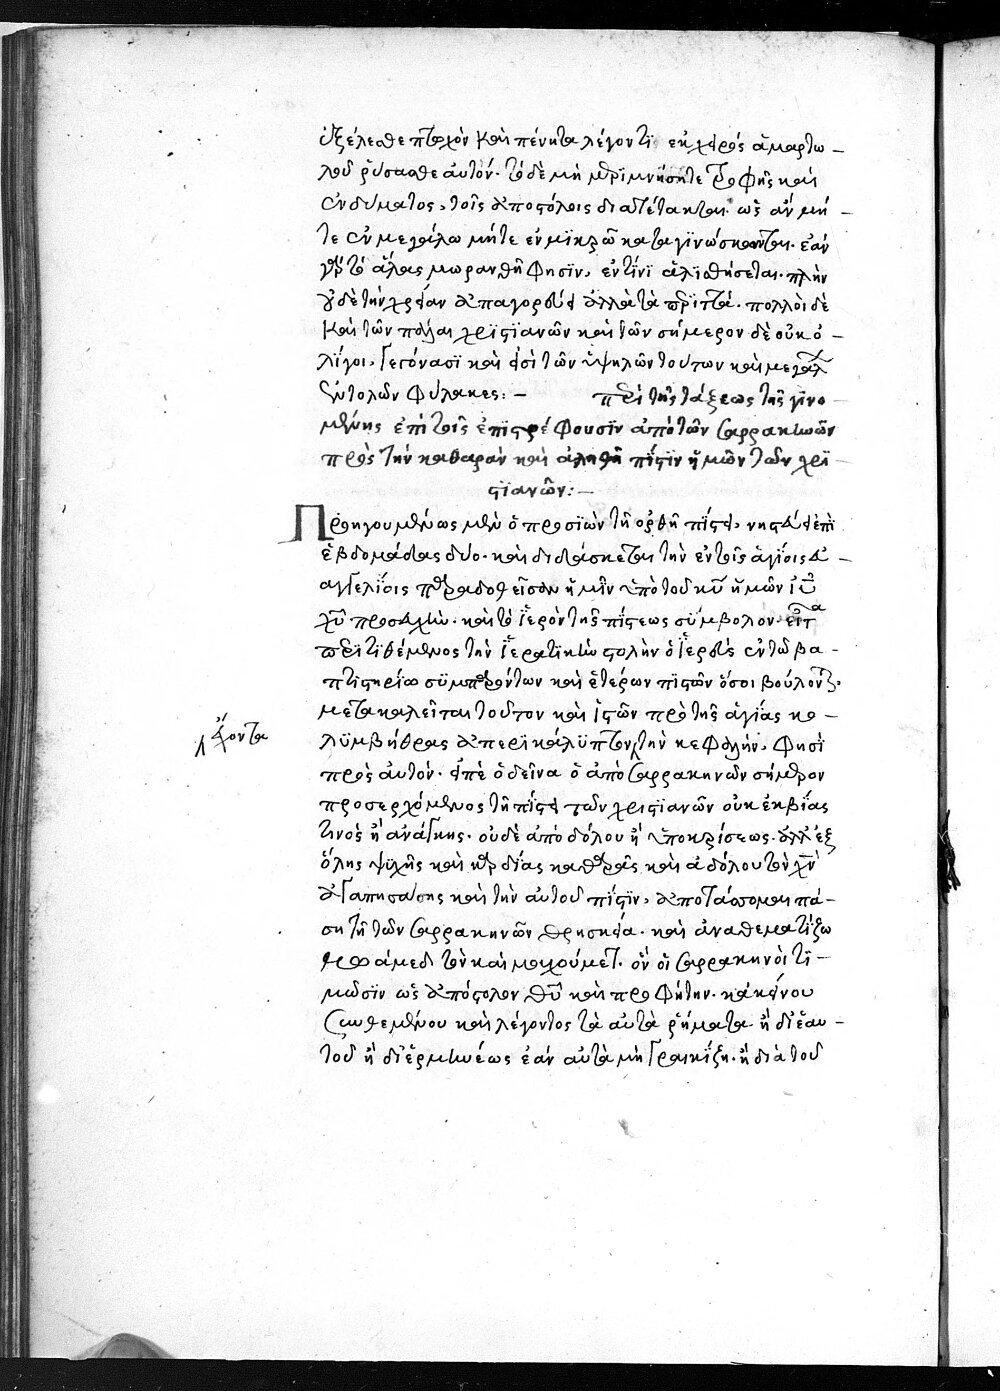 ἐξέλεσθε πτωχὸν καὶ πένητα λέγοντϊ ἐκ χειρὸς ἁμαρτω –
λοῦ ῥύσασθε αὐτόν. τὸ δὲ μὴ μεριμνήσητε τροφῆς καὶ
ἐνδύματος, τοῖς ἀποστόλοις διατέτακται. ὡς ἂν μή –
τε ἐν μεγάλω μήτε ἐν μϊκρῶ καταγϊνώσκωνται. ἐὰν
γὰρ τὸ ἅλας μωρανθῆ φησϊν, ἐν τίνϊ ἁλϊσθήσεται. πλὴν
οὐδὲ τὴν χρείαν ἀπαγορεύει ἀλλὰ τὰ περϊττά. πολλοὶ δὲ
καὶ τῶν πάλαι χρϊστϊανῶν καὶ τῶν σήμερον δὲ οὐκ ὀ –
λΐγοι, γεγόνασϊ καὶ εἰσὶ τῶν ὑψηλῶν τούτων καὶ μεγάλ
ἐντολῶν φύλακες: – περὶ τῆς τάξεως τῆς γϊνο –
μένης ἐπὶ τοῖς ἐπιστρέφουσϊν ἀπὸ τῶν σαρρακηνῶν
πρὸς τὴν καθαρὰν καὶ ἀληθῆ πίστϊν ἡμῶν τῶν χρϊ –
στϊανῶν: –
Προηγουμένως μὲν ὁ προσϊὼν τῆ ὀρθῆ πΐστει, νηστεύει ἐπὶ
ἑβδομάδας δύο. καὶ διδάσκεται τὴν ἐν τοῖς ἁγίοις εὐ –
αγγελΐοις παραδοθεῖσαν ἡμῖν ὑπὸ τοῦ κυ ἡμῶν ἰυ
χυ προσευχὴν. καὶ τὸ ἱερὸν τῆς πΐστεως σύμβολον. εἶτα
περϊτιθέμενος τὴν ἱερατϊκὴν στολὴν ὁ ἱερεὺς ἐν τῶ βα –
πτϊστηρίω σϋμπαρόντων καὶ ἑτέρων πϊστῶν ὅσοι βούλονται.
μετακαλεῖται τοῦτον καὶ ἱστῶν πρὸ τῆς ἁγίας κο –
λϋμβήθρας ἀπερικάλϋπτον τὴν κεφαλήν, φησὶ
πρὸς αὐτόν. εἰπὲ ὁ δεῖνα ὁ ἀπὸ σαρρακηνῶν σήμερον
προσερχόμενος τῆ πΐστει τῶν χριστϊανῶν οὐκ ἐκ βΐας
τινὸς ἢ ἀνάγκης. οὐδὲ ἀπὸ δόλου ἢ ὑποκρίσεως. ἀλλ' ἐξ
ὅλης ψϋχῆς καὶ καρδίας καθαρᾶς καὶ ἀδόλου τὸν χν
ἀγαπησάσης καὶ τὴν αὐτοῦ πίστϊν, ἀποτάσσομαι πά –
ση τῆ τῶν σαρρακηνῶν θρησκεία. καὶ ἀναθεματίζω
μωάμεδ τὸν καὶ μουχούμετ. ὃν οἱ σαρρακηνοὶ τϊ –
μῶσϊν ὡς ἀπόστολον θυ καὶ προφήτην. κἀκείνου
συνθεμένου καὶ λέγοντος τὰ αὐτὰ ῥήματα ἢ δι' ἑαυ –
τοῦ ἢ δι' ἑρμηνέως ἐὰν αὐτὰ μὴ γραικΐζη. ἢ διὰ τοῦ